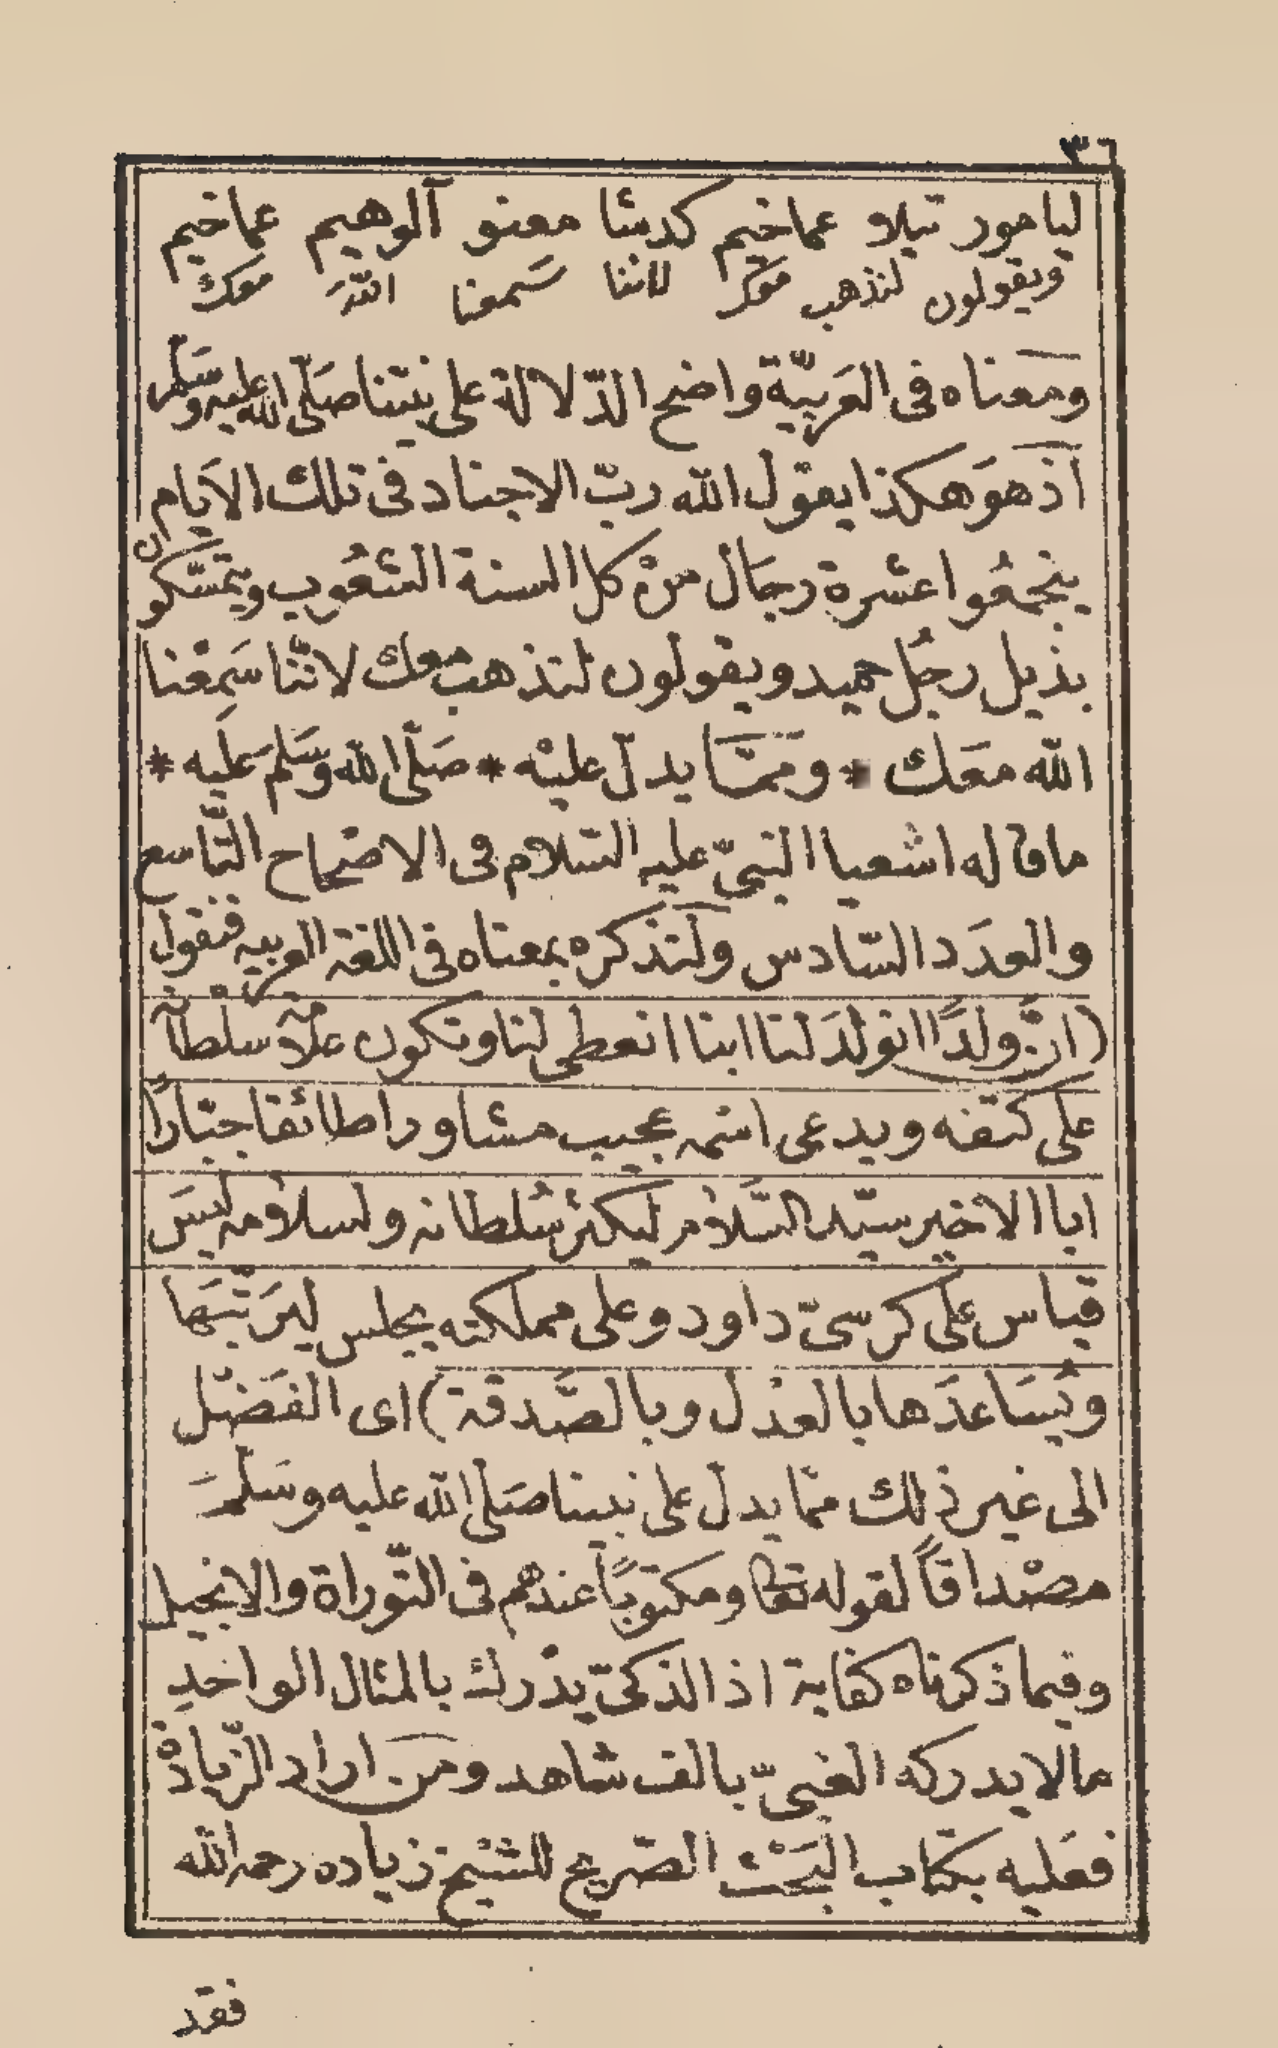 ٣٦
ليامور تيلاو عماخيم كدشا معنو آلوهيم عماخيم
ويقولون لنذهب معكم لاننا سَمعنا اللّه معك
ومعناه فى العَربيّة واضح الدّلالة على نبيّنا صَلّى الله عليه وسَلّم
اذ هوَ هكذا يقول الله ربّ الاجناد فى تلك الاَيام
ينجمعُوا عشرة رجَال منْ كل السنة الشعُوب ويتمسّكون
بذيل رجُل حميد ويقولون لنذهب معك لانّنا سَمِعْنا
الله معَك * وممّا يدلّ عليْه * صَلّى الله وسَلم عَليه *
ما قاله اشعيا النبىّ عليه السّلام فى الاصْحاح التّاسع
والعدَد السّادس ولنذكره بمعناه فى اللغة العربيه فنقول
(انّ ولدًا انولدَ لنا ابنا انعطى لنا وتكون علامة سلْطانه
على كتفه ويدعى اسْمه عجيب مشاورا طائقا جبّارًا
ابا الاخير سيّد السَّلاْم ليكثرْ سُلطانه ولسلاْمه ليسَ
قياس على كرسىّ داود وعلى مملكته يجلس ليرَتّبَها
ويُسَاعدَها بالعدْل وبالصَّدقة) اى الفَضْل
الى غير ذلك ممّا يدلّ على نبينا صَلّى الله عليه وسَلّمَ
مصْداقاً لقوله تعالى ومكتوباً عندهم فى التّوراة والانجيل
وفيما ذكرناه كفاية اذ الذكىّ يدْرك بالمثال الواحدِ
مالا يدركه الغبىّ بالف شاهد ومن اراد الزّيادة
فعَليه بكتاب البَحْث الصّريح للشيْخ زياده رحمه الله
فقد